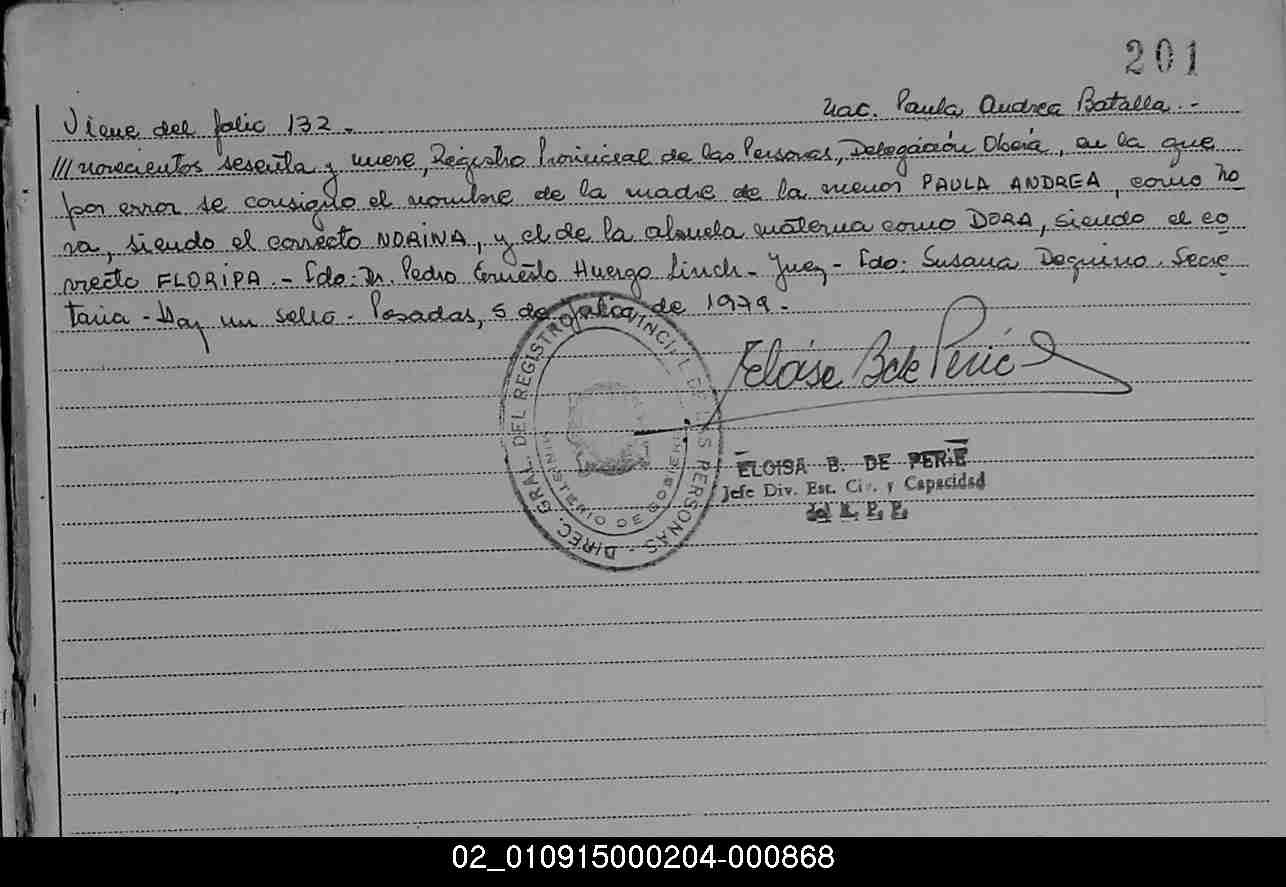 201
Viene del folio 132.-
Nac. Paula Andrea Batalla.-
/// novecientos sesenta y nueve, Registro Provincial de las Personas, Delegación Oberá, en la que
por error se consignó el nombre de la madre de la menor PAULA ANDREA, como No
ra, siendo el correcto NORINA, y el de la abuela materna como DORA, siendo el co
rrecto FLORIPA.- Fdo: Dr. Pedro Ernesto Huergo Linch- Juez- Fdo: Susana Dequino. Secre
taria - Hay un sello.- Posadas, 5 de julio de 1979.-
DIREC. GRAL. DEL REGISTRO PROVINCIAL DE LAS PERSONAS
MINISTERIO DE GOBIERNO
Eloisa B de Perié
ELOISA B. DE PERIE
Jefe Div. Est. Civ. y Capacidad
del R. P. P.
02_010915000204-000868